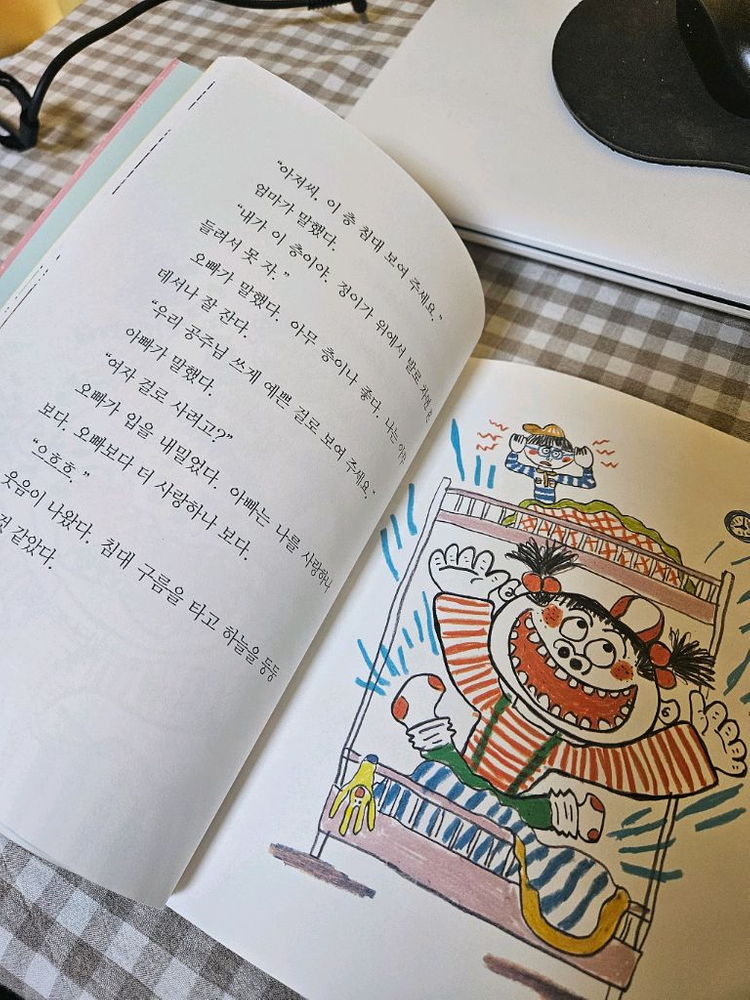 “아저씨, 이 층 침대 보여 주세요.”
엄마가 말했다.
“내가 이 층이야. 정이가 위에서 발로 차면
들려서 못 자.”
오빠가 말했다. 아무 층이나 좋다. 나는 아무
데서나 잘 잔다.
“우리 공주님 쓰게 예쁜 걸로 보여 주세요.”
아빠가 말했다.
“여자 걸로 사려고?”
오빠가 입을 내밀었다. 아빠는 나를 사랑하나
보다. 오빠보다 더 사랑하나 보다.
“으흐흐.”
웃음이 나왔다. 침대 구름을 타고 하늘을 둥둥
것 같았다.